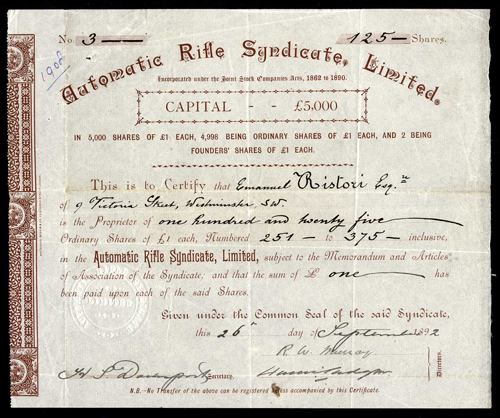 No. 3 125 Shares.
1908
Automatic Rifle Syndicate, Limited.
Incorporated under the Joint Stock Companies Acts, 1862 to 1890.
CAPITAL - - £5,000
IN 5,000 SHARES OF £1 EACH, 4,998 BEING ORDINARY SHARES OF £1 EACH, AND 2 BEING
FOUNDERS' SHARES OF £1 EACH.
This is to Certify that Emanuel Ristori Esqre
of 9 Victoria Street, Westminster, S.W.
is the Proprietor of one hundred and twenty five
Ordinary Shares of £1 each, Numbered 251 to 375 inclusive,
in the Automatic Rifle Syndicate, Limited, subject to the Memorandum and Articles
of Association of the Syndicate, and that the sum of £ one has
been paid upon each of the said Shares.
Given under the Common Seal of the said Syndicate,
this 26th day of September 1892
R. W. Murray
Directors.
H. S. Davenport Secretary.
N.B.—No Transfer of the above can be registered unless accompanied by this Certificate.